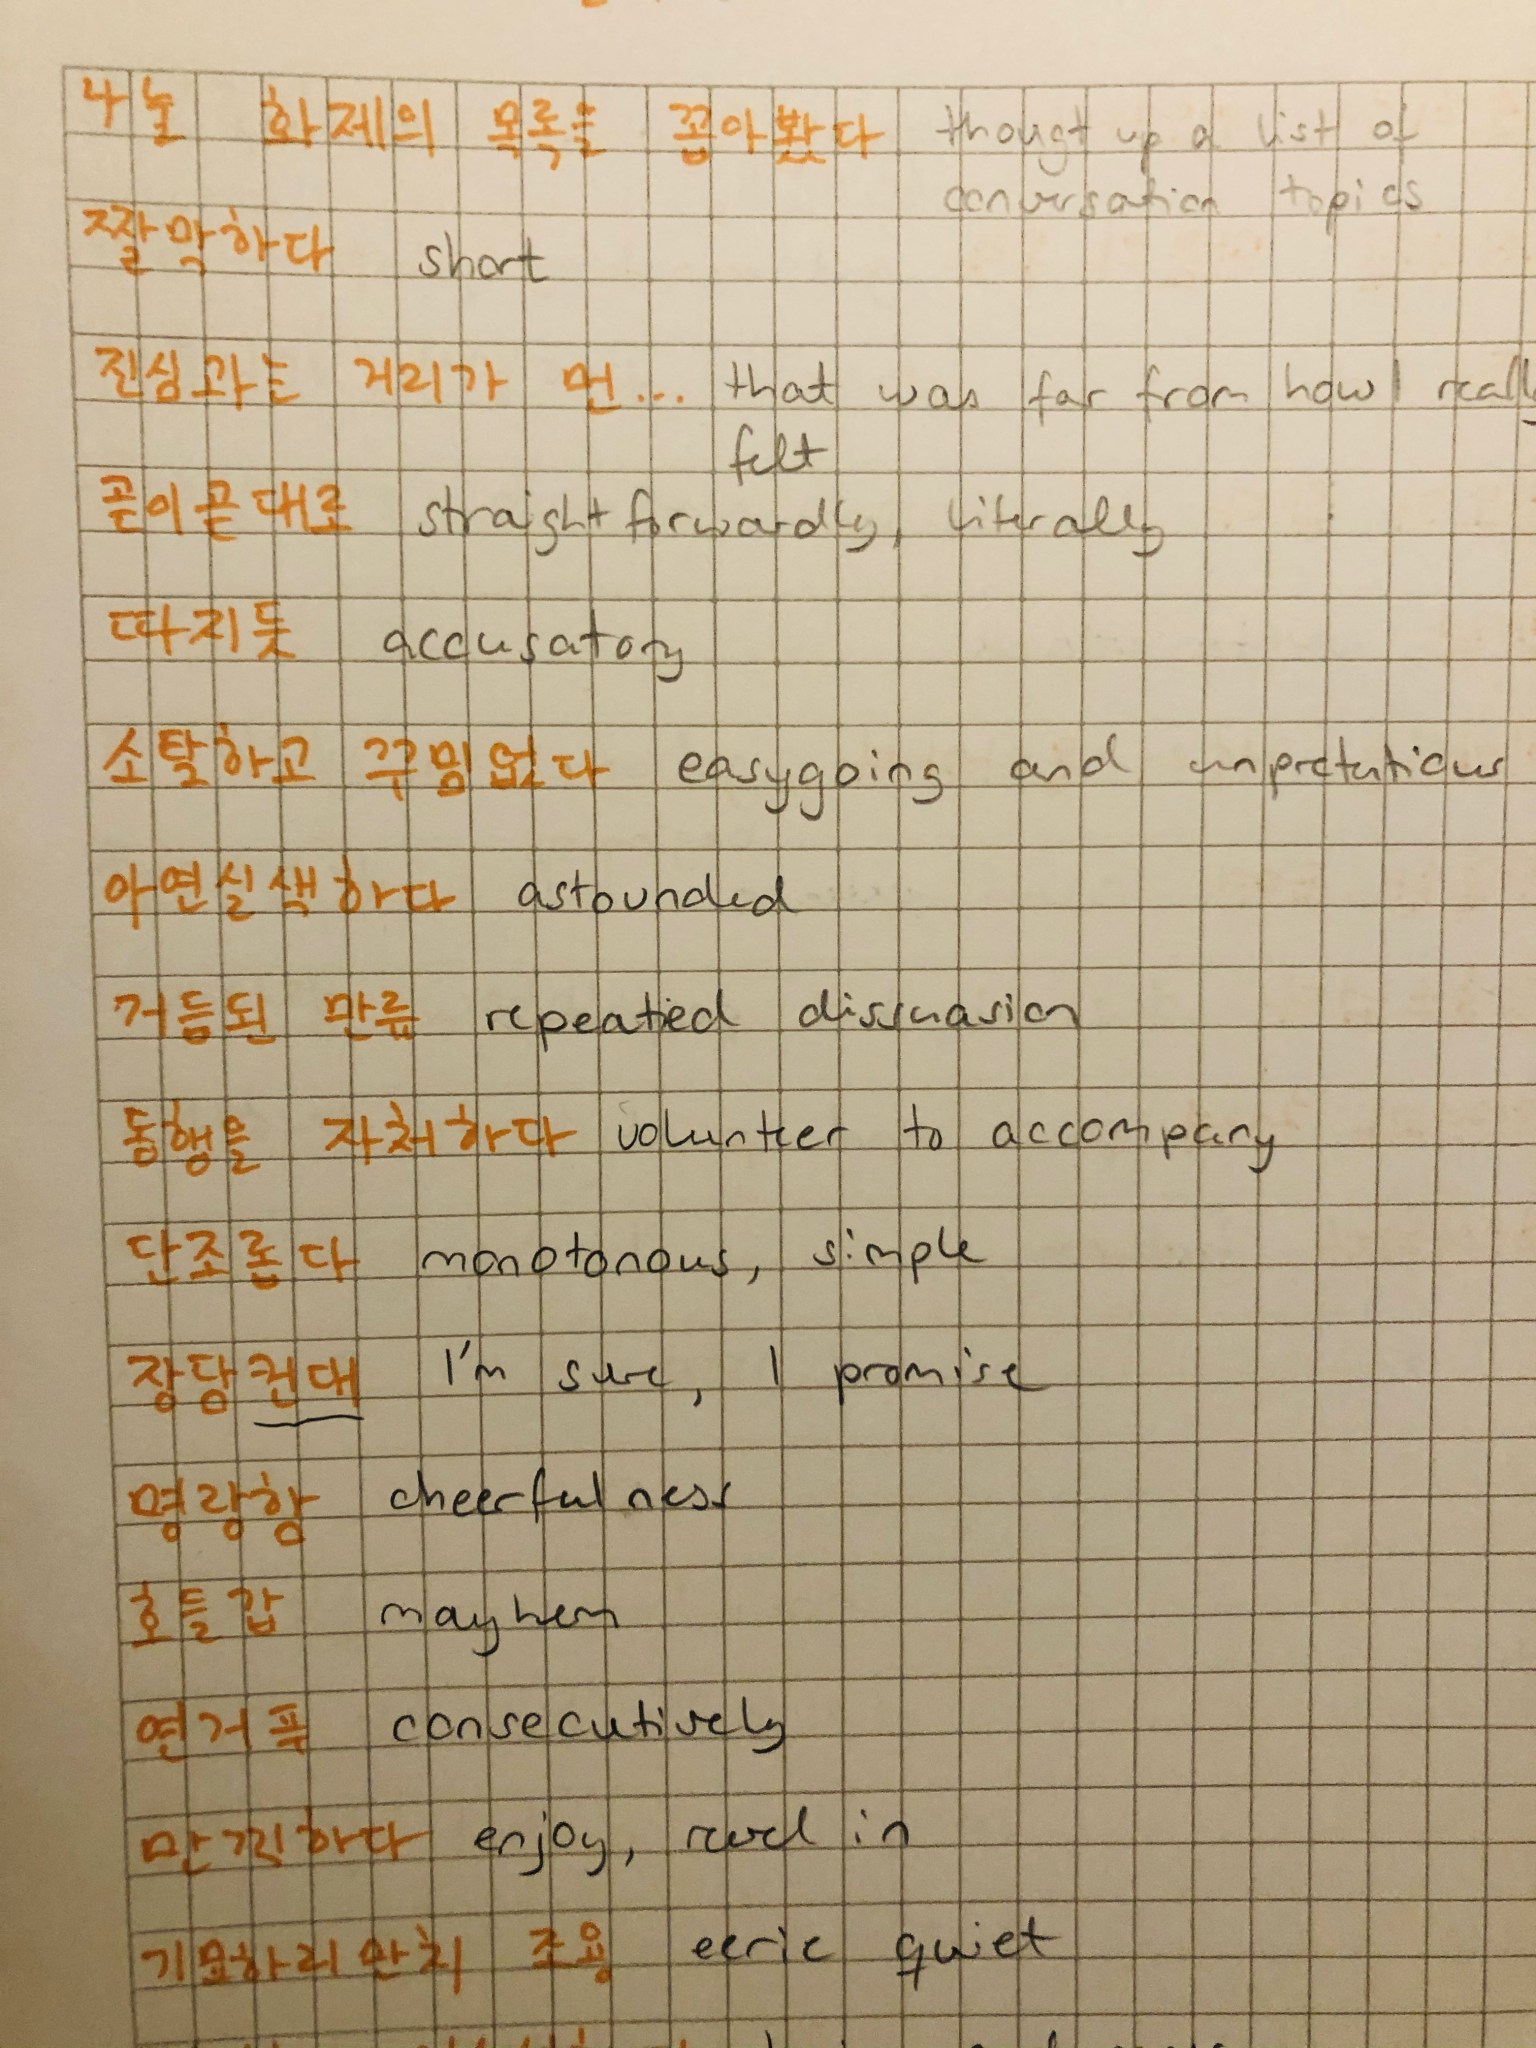 나눌 화제의 목록을 꼽아봤다 thougt up a list of
conversation topics
짤막하다 short
진심과는 거리가 먼... that was far from how I really
felt
곧이곧대로 straightforwardly, literally
따지듯 accusatory
소탈하고 꾸밈없다 easygoing and unpretentious
아연실색하다 astounded
거듭된 만류 repeatied dissuasion
동행을 자처하다 volunteer to accompany
단조롭다 monotonous, simple
장담컨대 I'm sure, I promise
명랑함 cheerfulness
호들갑 mayhem
연거푸 consecutively
만끽하다 enjoy, revel in
기묘하리만치 조용 eerie quiet